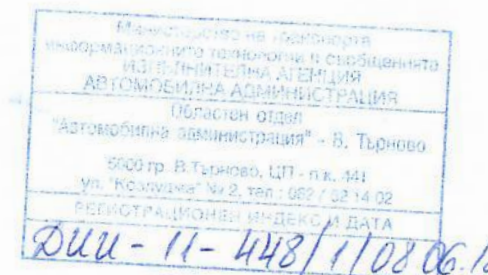 Министерство на транспорта
информационните технологии и съобщенията
ИЗПЪЛНИТЕЛНА АГЕНЦИЯ
АВТОМОБИЛНА АДМИНИСТРАЦИЯ
Областен отдел
"Автомобилна администрация" - В. Търново
5000 гр. В.Търново, ЦП - п.к. 441
ул. "Козлуджа" № 2, тел.: 062 / 52 14 02
РЕГИСТРАЦИОНЕН ИНДЕКС И ДАТА
ДИИ - 11 - 448/1/08.06.